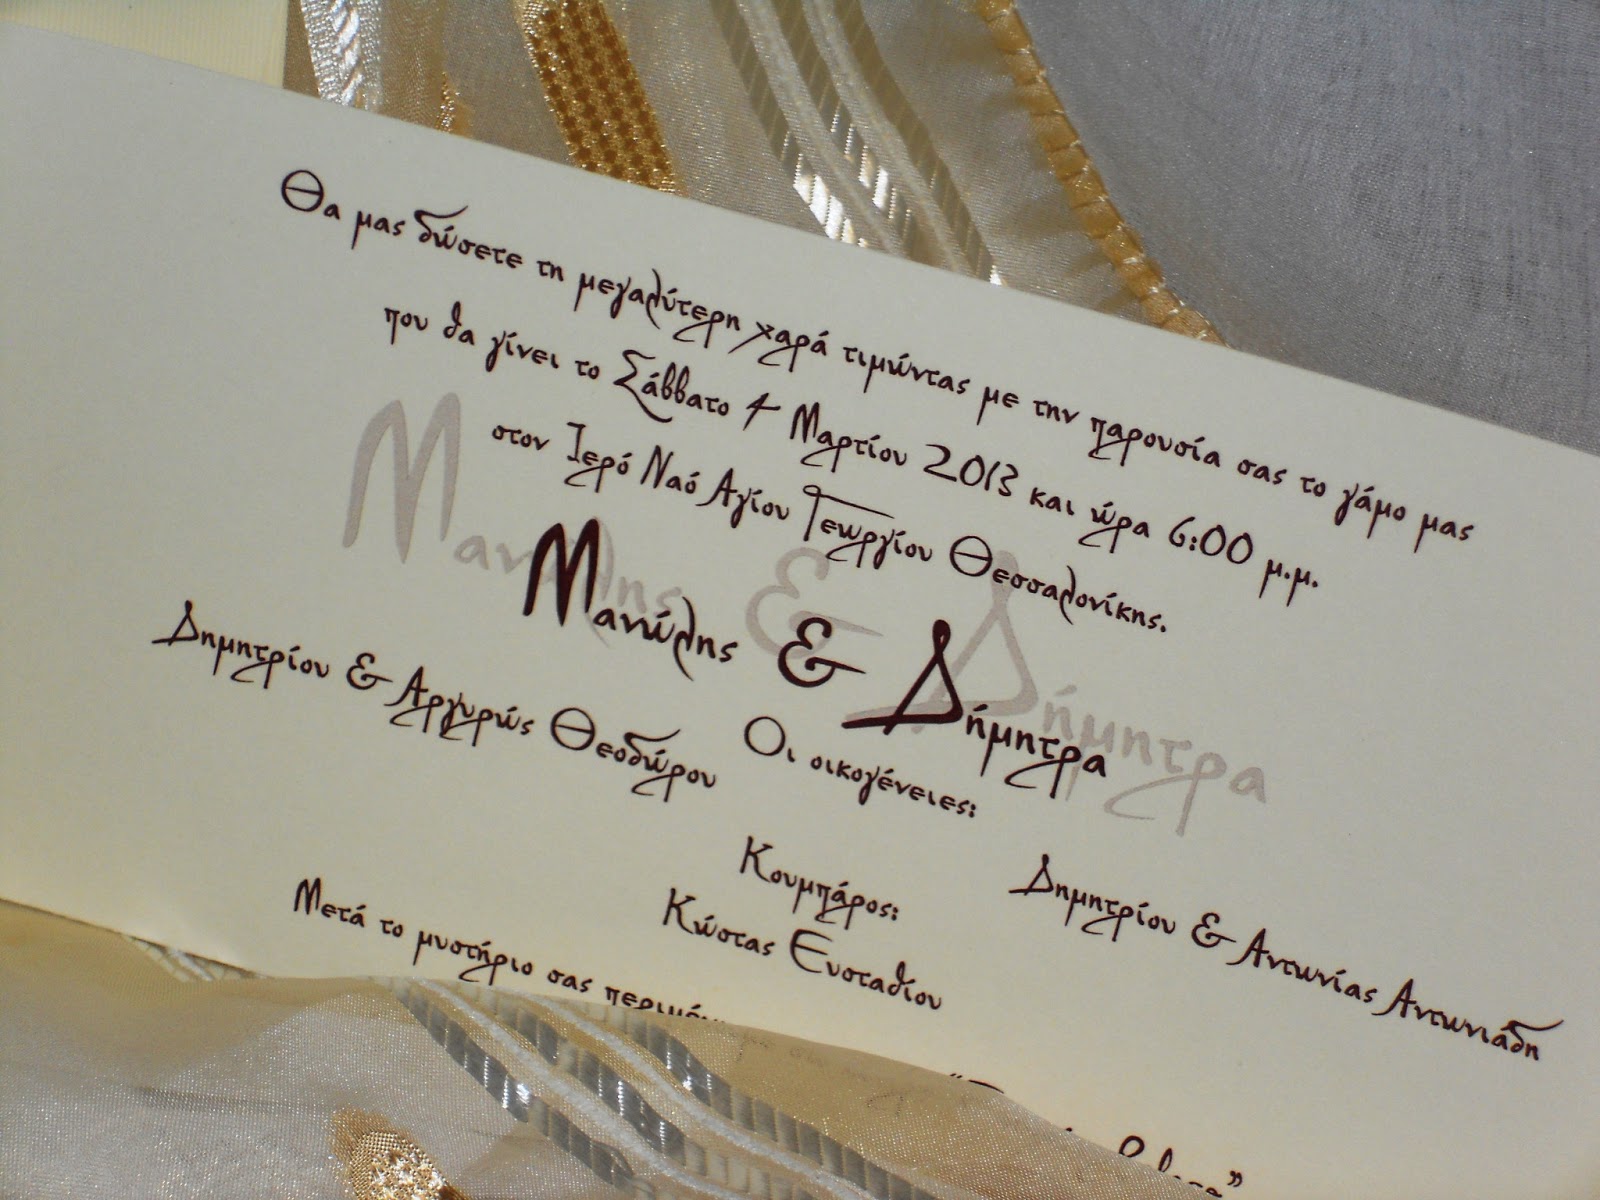 Θα μας δώσετε τη μεγαλύτερη χαρά τιμώντας με την παρουσία σας το γάμο μας
που θα γίνει το Σάββατο 4 Μαρτίου 2013 και ώρα 6:00 μ.μ.
στον Ιερό Ναό Αγίου Γεωργίου Θεσσαλονίκης.
Μανώλης & Δήμητρα
Μανώλης & Δήμητρα
Οι οικογένειες:
Δημητρίου & Αργυρώς Θεοδώρου
Δημητρίου & Αντωνίας Αντωνιάδη
Κουμπάρος:
Κώστας Ευσταθίου
Μετά το μυστήριο σας